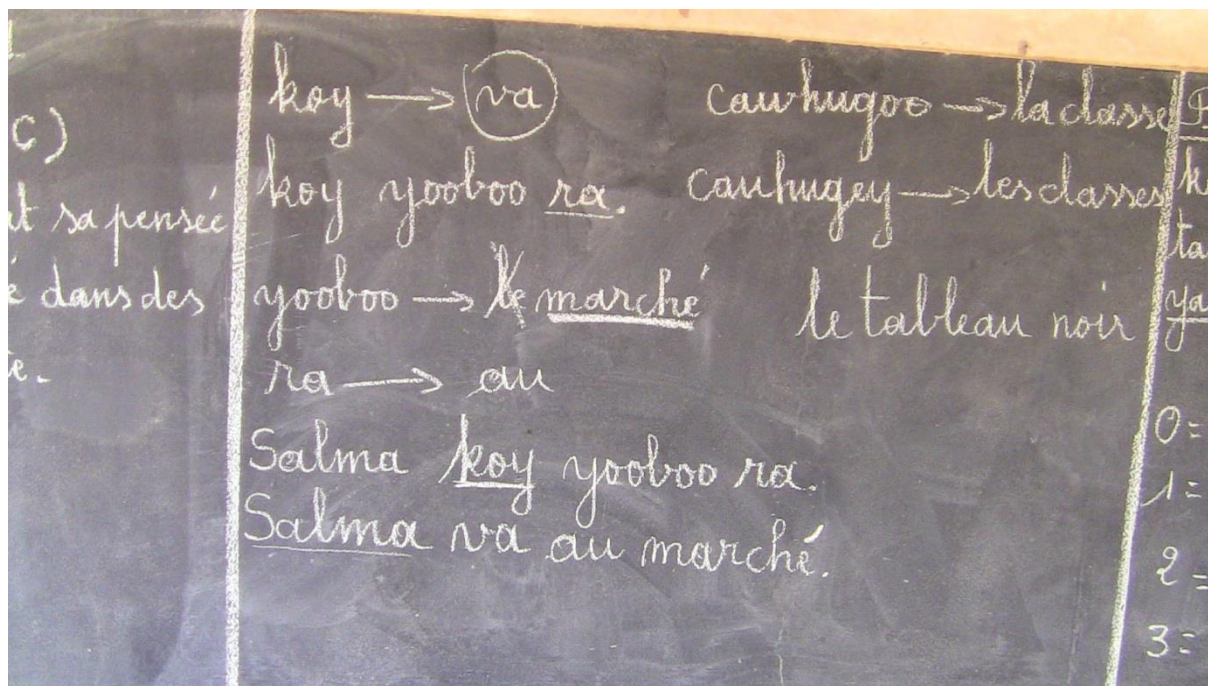 C)
sa pensée
dans des
koy → va
koy yooboo ra.
yooboo → le marché
ra → au
Salma koy yooboo ra.
Salma va au marché.
cawhugoo → la classe
cauhugey → les classes
le tableau noir
ta
ya
0 =
1 =
2 =
3 =